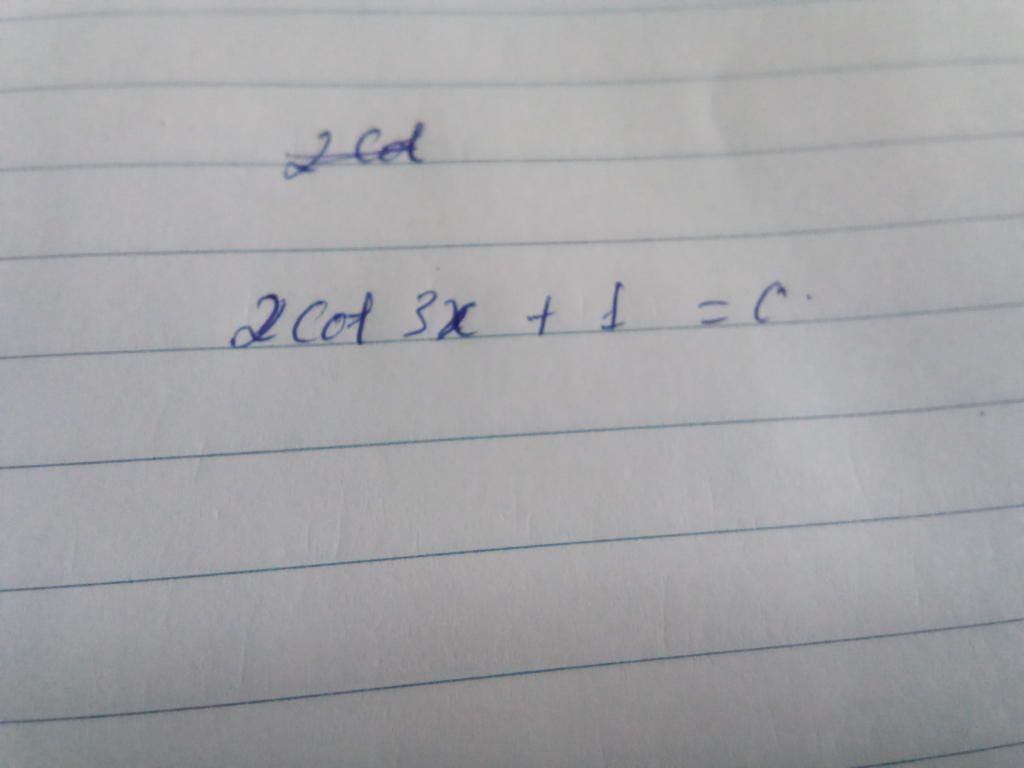 2 Cot
2 Cot 3x + 1 = C.